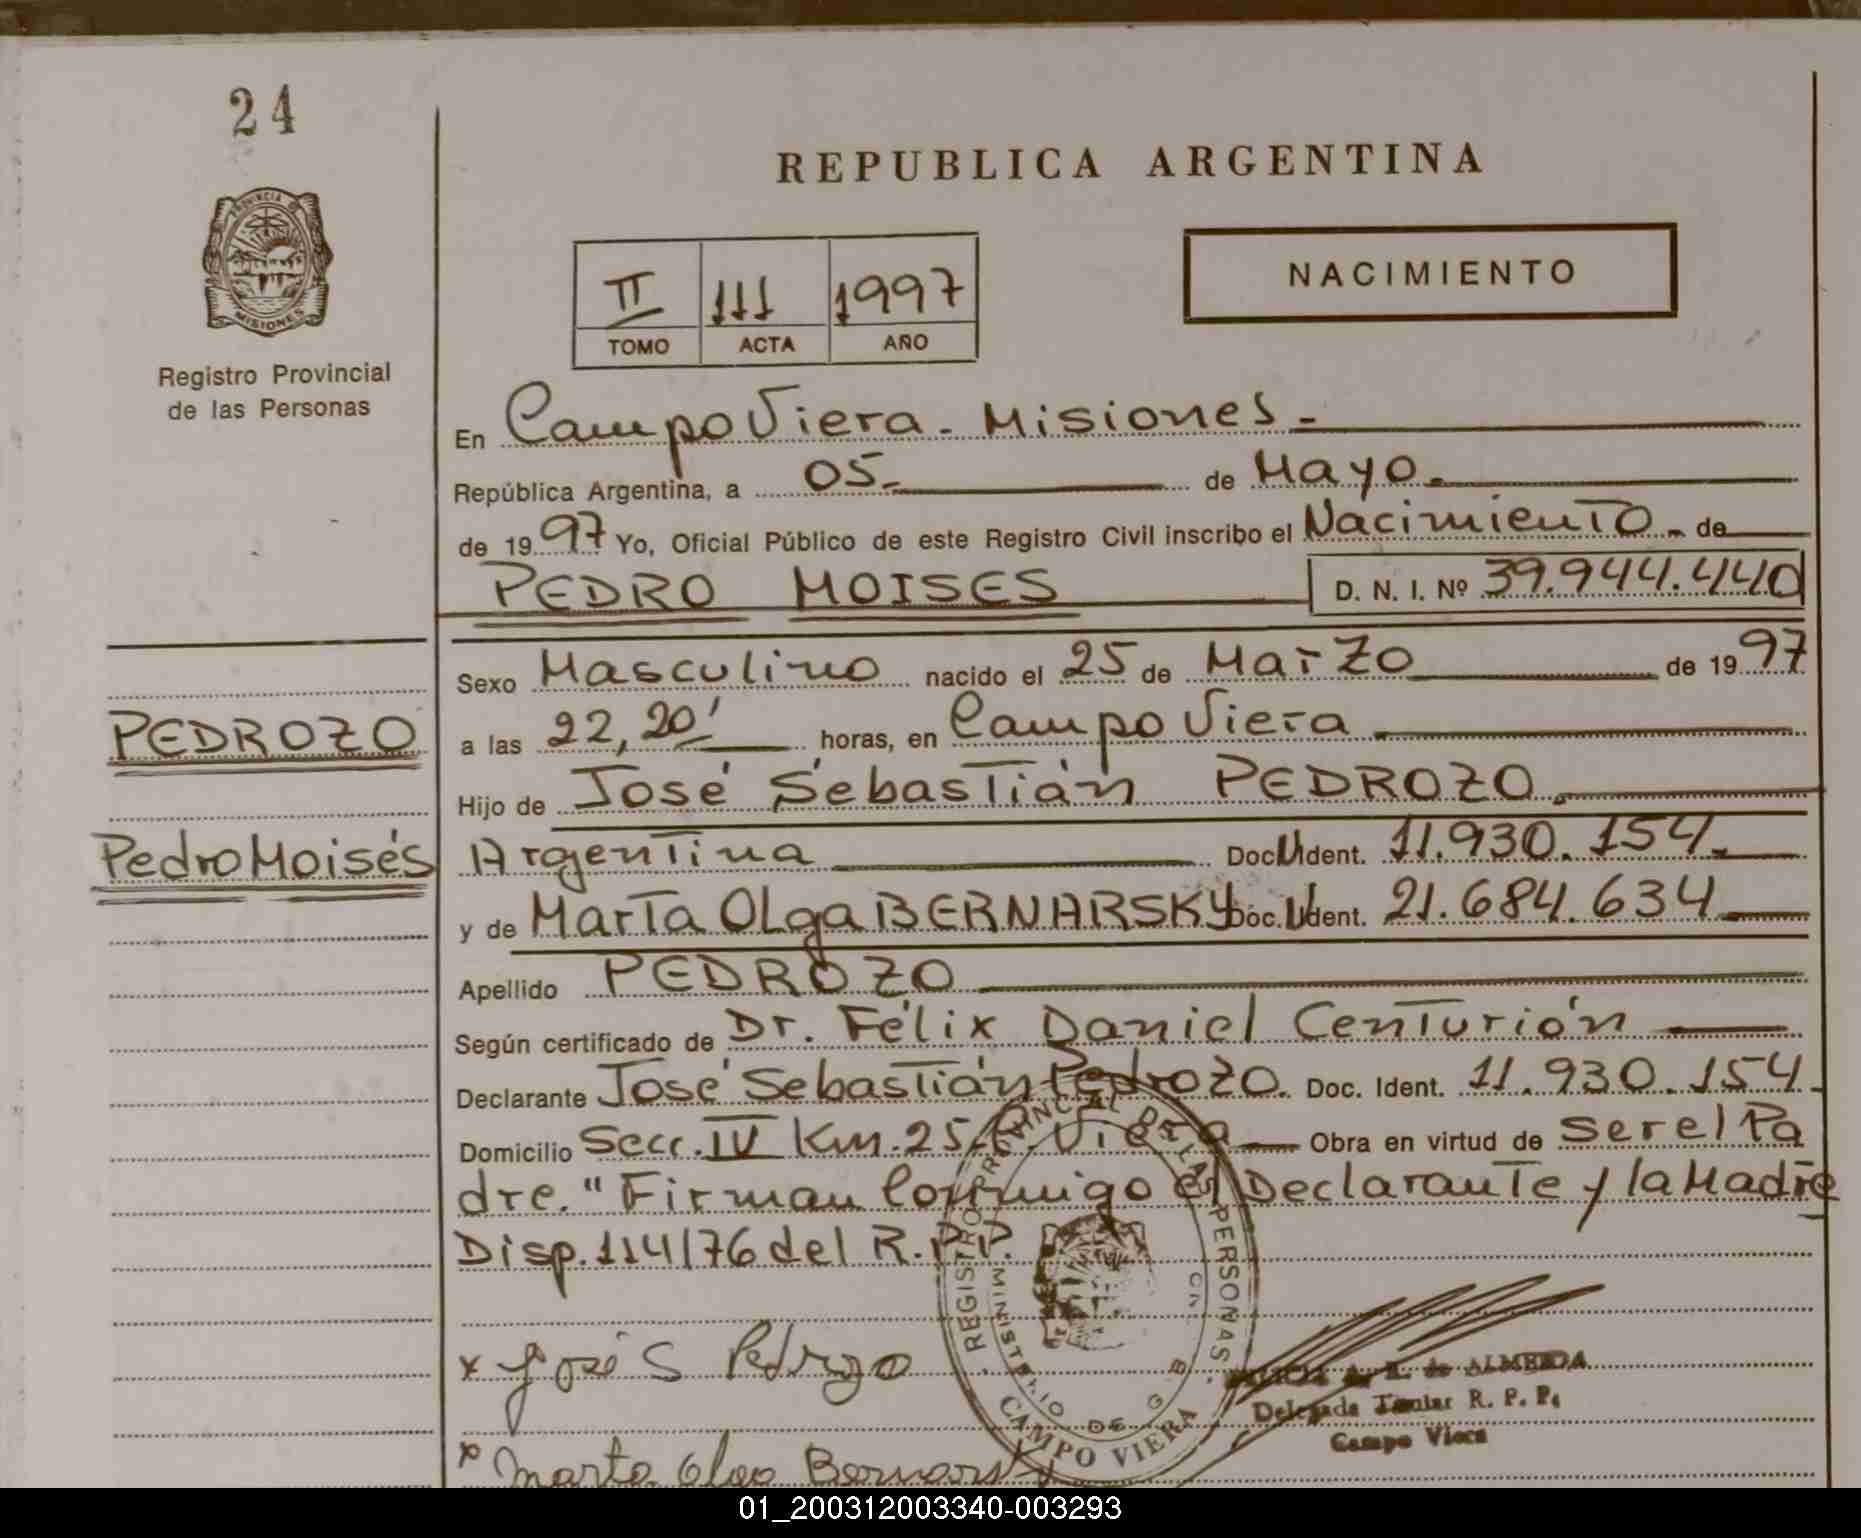 24
PROVINCIA DE
MISIONES
Registro Provincial
de las Personas
PEDROZO
Pedro Moisés
REPUBLICA ARGENTINA
NACIMIENTO
II 111 1997
TOMO ACTA AÑO
En Campo Viera - Misiones -
República Argentina, a 05 - de Mayo -
de 1997 Yo, Oficial Público de este Registro Civil inscribo el Nacimiento - de
PEDRO MOISES D. N. I. Nº 39.944.440
Sexo Masculino nacido el 25 de Marzo de 1997
a las 22,20' horas, en Campo Viera
Hijo de José Sebastián PEDROZO.
Argentina Doc. Ident. 11.930.154
y de Marta Olga BERNARSKY Doc. Ident. 21.684.634
Apellido PEDROZO
Según certificado de Dr. Félix Daniel Centurión
Declarante José Sebastián Pedrozo. Doc. Ident. 11.930.154.
Domicilio Secc. IV Km. 25 C. Viera Obra en virtud de ser el Pa
dre." Firman Conmigo el Declarante y la Madre
Disp. 114/76 del R.P.P.
REGISTRO PROVINCIAL DE LAS PERSONAS
MINISTERIO DE GOB
CAMPO VIERA
x José S Pedrozo
A. R. de ALMEIDA
Delegada Titular R. P. P.
Campo Viera
x Marta Olga Bernarsky
01_200312003340-003293